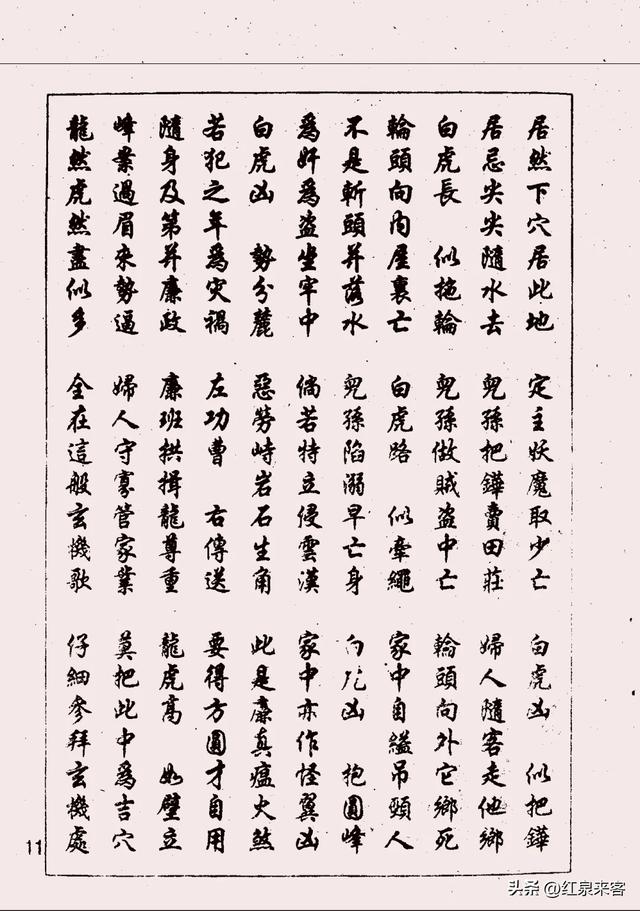 居然下穴居此地 定主妖魔取少亡 白虎凶 似把鏵
居忌尖尖隨水去 兒孫把鏵賣田莊 婦人隨客走他鄉
白虎長 似拖輪 兒孫做賊盜中亡 輪頭向外它鄉死
輪頭向內屋裏亡 白虎路 似牽繩 家中自縊吊頸人
不是斬頭并落水 兒孫陷溺早亡身 白虎凶 抱圓峰
為奸為盜坐牢中 倘若特立侵雲漢 家中亦作怪翼凶
白虎凶 勢分麓 惡勞峙岩石生角 此是廉真瘟火煞
若犯之年為災禍 左功曹 右傳送 要得方圓才自用
隨身及第并廉政 廉班拱揖龍尊重 龍虎高 如壁立
峰 過眉來勢逼 婦人守寡管家業 莫把此中為吉穴
龍然虎然盡似多 全在這般玄機歌 仔細參拜玄機處
11
头条 @红泉来客